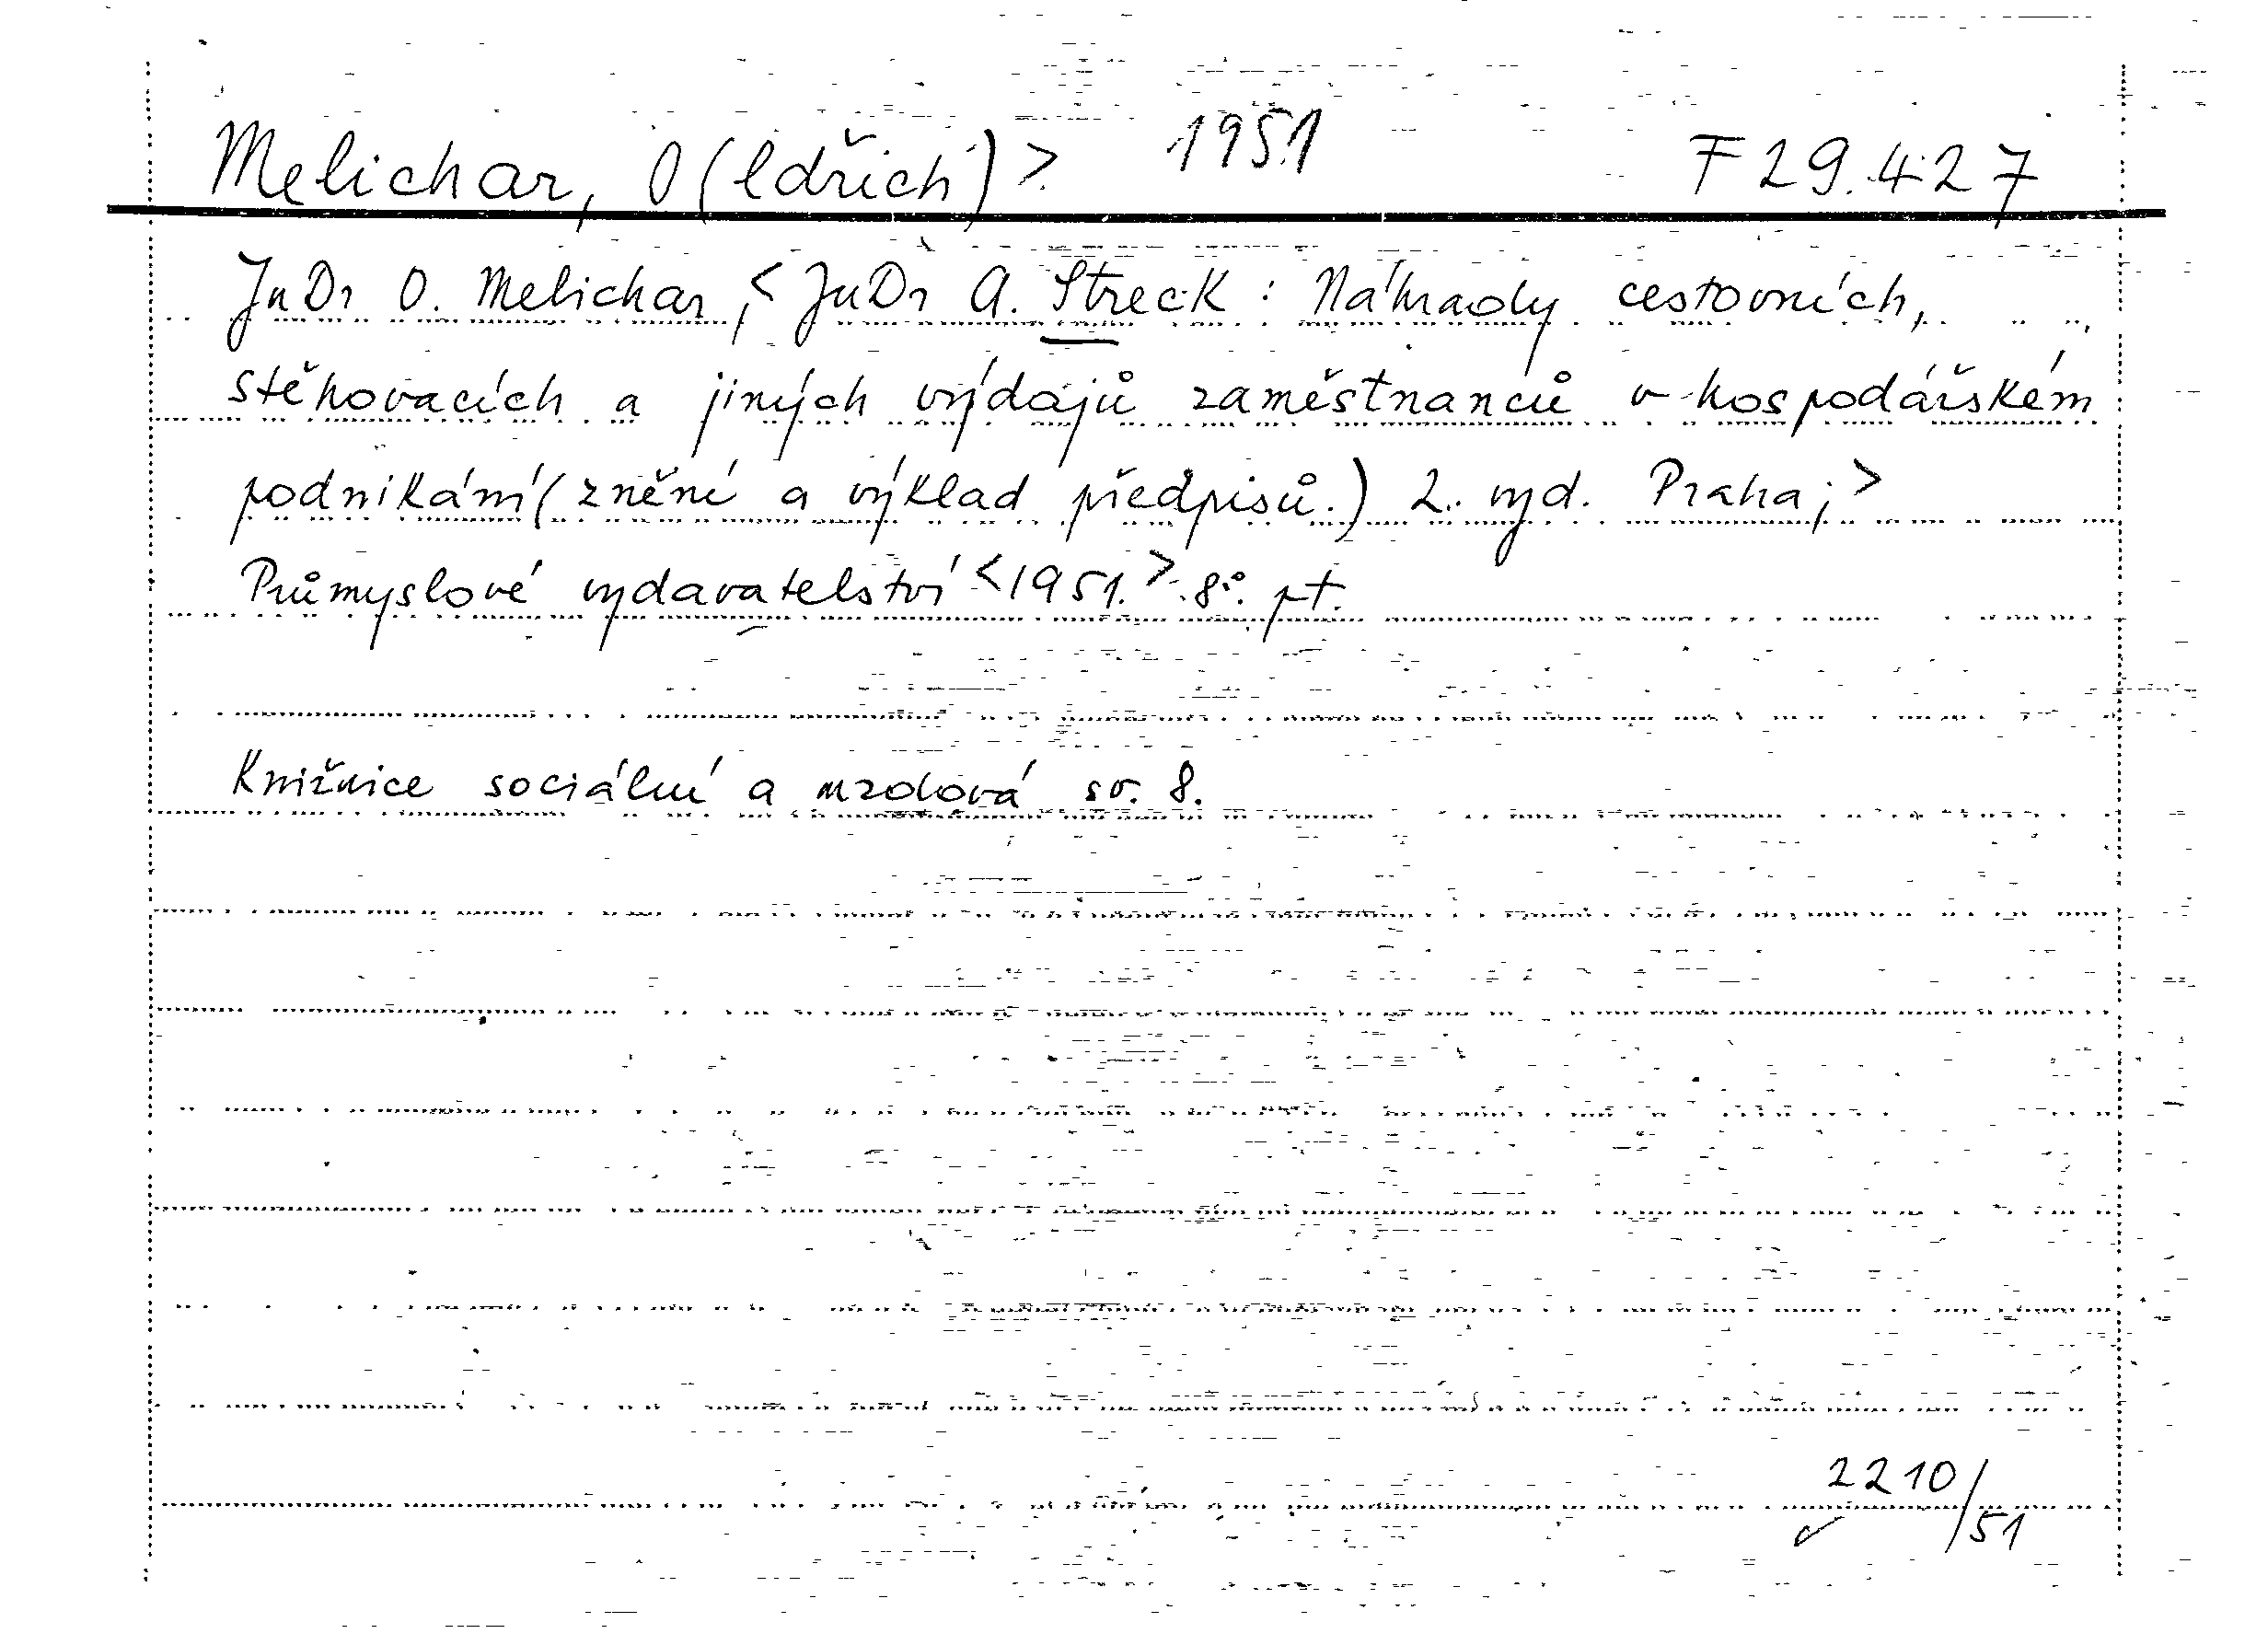 Melichar, O(ldřich) > 1951 F 29.427
JuDr O. Melichar, < JuDr A. Streck : Náhrady cestovních,
stěhovacích a jiných výdajů zaměstnanců v hospodářském
podnikání (znění a výklad předpisů.) 2. vyd. Praha; >
Průmyslové vydavatelství <1951.> 8°. pt.
Knižnice sociální a mzdová sv. 8.
2210/51